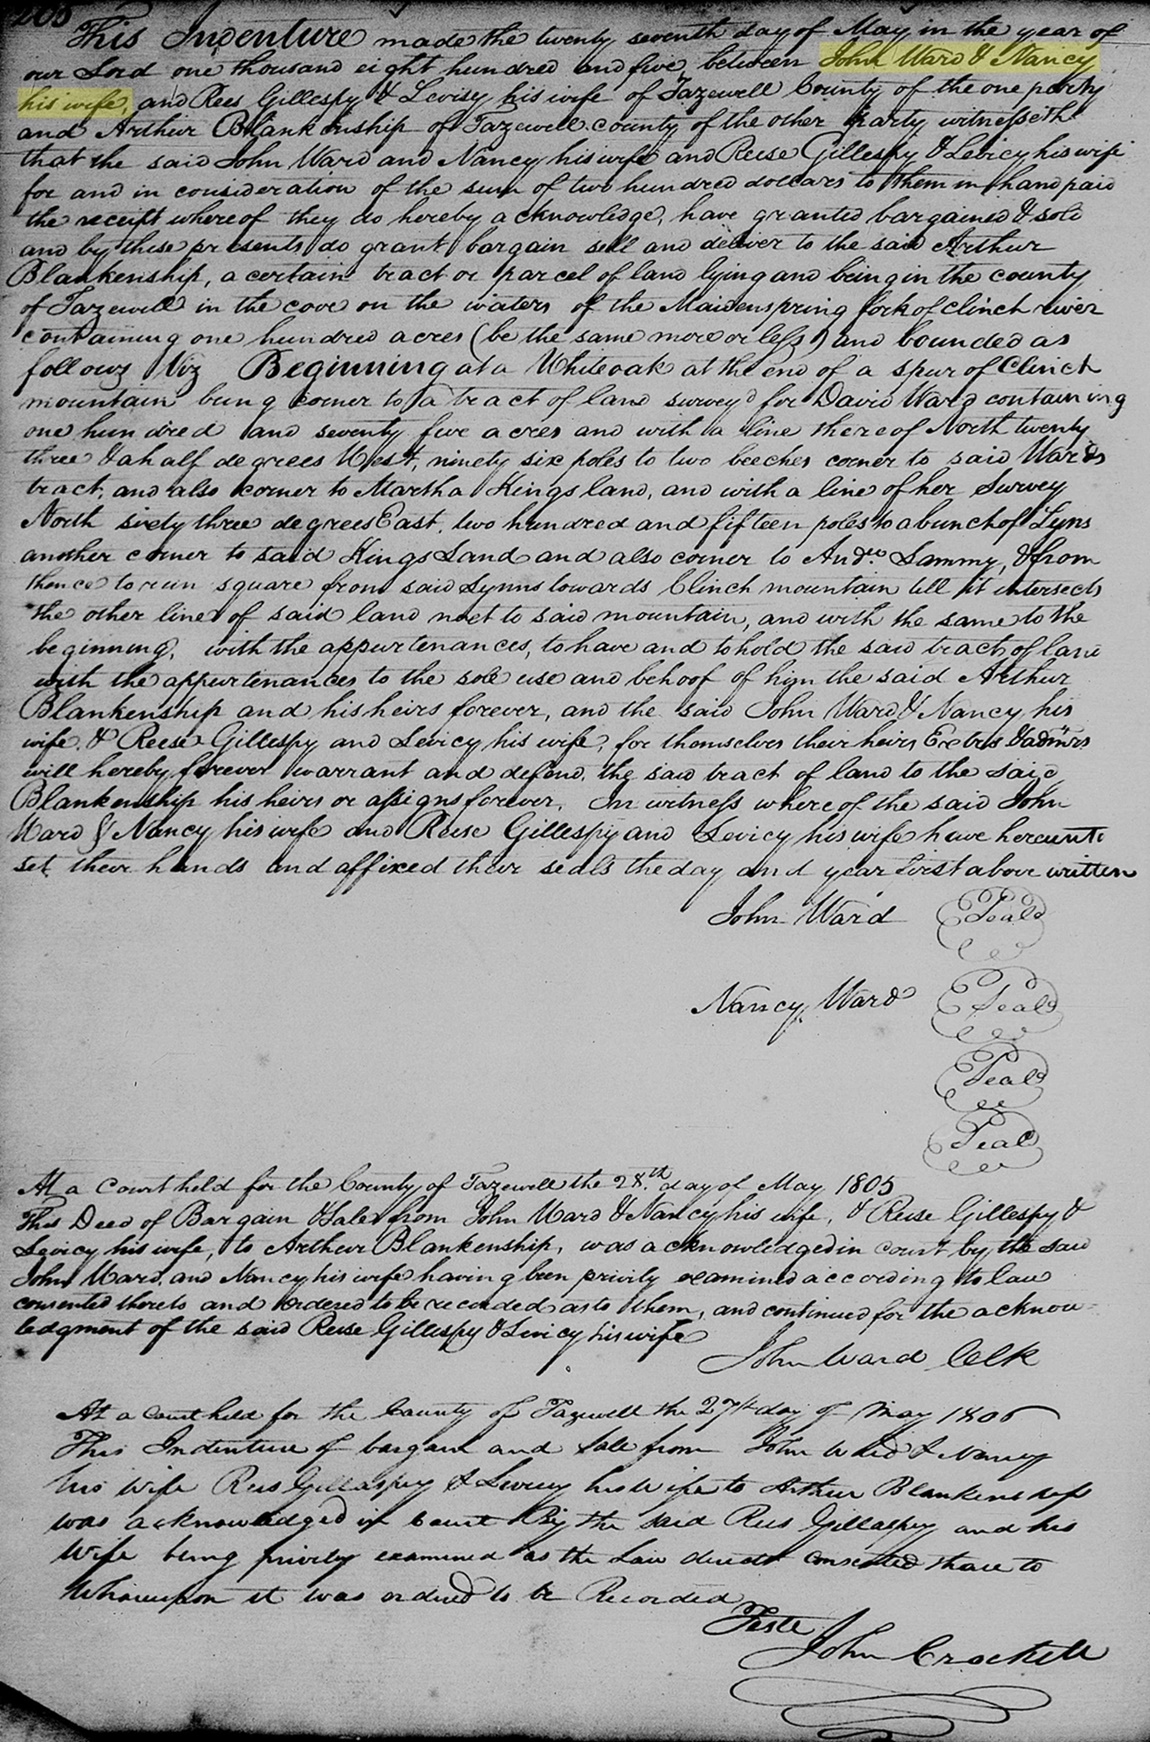 205
This Indenture made the twenty seventh day of May in the year of
our Lord one thousand eight hundred and five between John Ward & Nancy
his wife, and Rees Gillespy & Levisy his wife of Tazewell County of the one party
and Arthur Blankinship of Tazewell county of the other party witnesseth
that the said John Ward and Nancy his wife and Reese Gillespy & Levicy his wife
for and in consideration of the sum of two hundred dollars to them in hand paid
the receipt whereof they do hereby acknowledge, have granted bargained & sold
and by these presents do grant bargain sell and deliver to the said Arthur
Blankenship, a certain tract or parcel of land lying and being in the county
of Tazewell in the cove on the waters of the Maidenspring fork of Clinch river
containing one hundred acres (be the same more or less) and bounded as
follows Viz Beginning at a Whiteoak at the end of a spur of Clinch
mountain being corner to a tract of land survey'd for David Ward containing
one hundred and seventy five acres and with a line thereof North twenty
three & a half degrees West, ninety six poles to two beeches corner to said Wards
tract, and also corner to Martha Kings land, and with a line of her Survey
North sixty three degrees East, two hundred and fifteen poles to a bunch of Lyns
another corner to said Kings Land and also corner to Andw. Sammy, & from
thence to run square from said Lynns towards Clinch mountain till it intersects
the other line of said land next to said mountain, and with the same to the
beginning, with the appurtenances, to have and to hold the said tract of land
with the appurtenances to the sole use and behoof of him the said Arthur
Blankenship and his heirs forever, and the said John Ward & Nancy his
wife, & Reese Gillespy and Levicy his wife, for themselves their heirs Extrs & admrs
will hereby forever warrant and defend, the said tract of land to the said
Blankenship his heirs or assigns forever, In witness whereof the said John
Ward & Nancy his wife and Reese Gillespy and Levicy his wife have hereunto
set their hands and affixed their seals the day and year first above written
John Ward Seal
Nancy Ward Seal
Seal
Seal
At a Court held for the County of Tazewell the 28.th day of May 1805
This Deed of Bargain & Sale from John Ward & Nancy his wife, & Reese Gillespy &
Levicy his wife, to Arthur Blankenship, was acknowledged in court by the said
John Ward, and Nancy his wife having been privily examined according to law
consented thereto and ordered to be recorded as to them, and continued for the acknow-
ledgment of the said Reese Gillespy & Levicy his wife
John Ward Clk
At a Court held for the County of Tazewell the 27th day of May 1806
This Indenture of bargain and Sale from John Ward & Nancy
his wife Rees Gillaspy & Levicy his Wife to Arthur Blankenship
was acknowledged in Court By the said Rees Gillaspy and his
Wife being privily examined as the Law directs consented thare to
Whareupon it was ordred to be Recorded
Teste
John Crockett